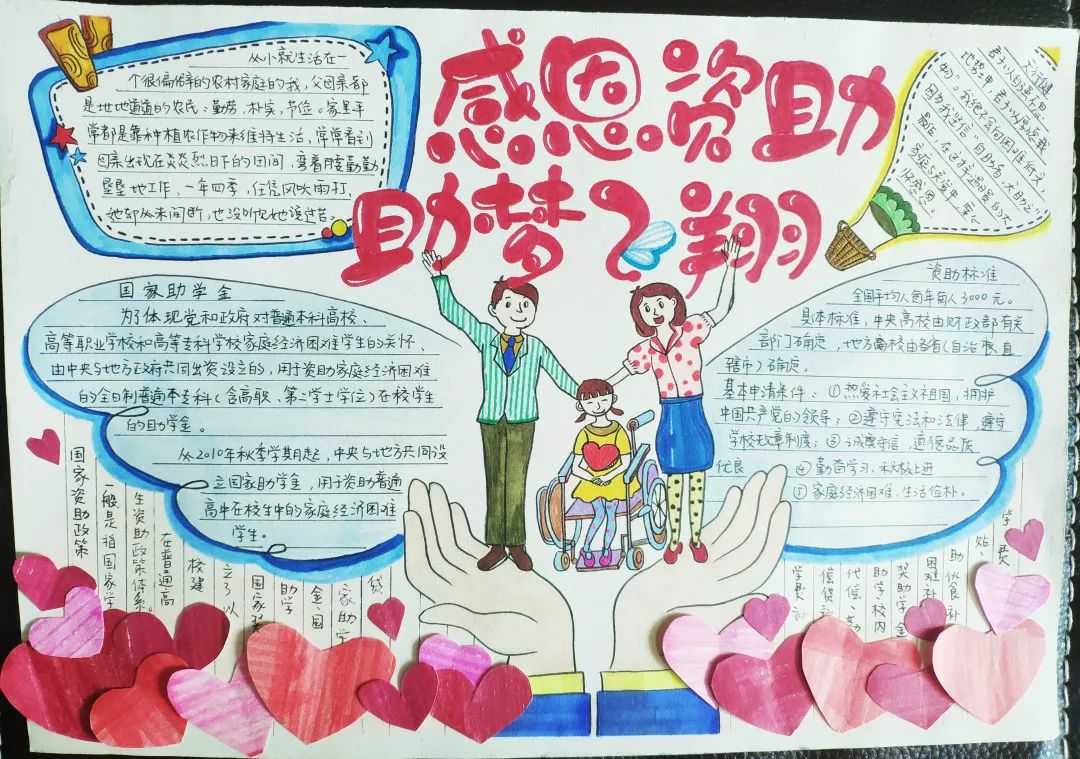 感恩资助
助梦飞翔
从小就生活在一
个很偏僻的农村家庭的我，父母亲都
是地地道道的农民：勤劳、朴实，节俭。家里平
常都是靠种植农作物来维持生活，常常看到
母亲出现在炎炎烈日下的田间，弯着腰勤勤
垦垦地工作，一年四季，任凭风吹雨打，
她都从未间断，也没听见她说过苦。
天行健
君子以自强不息
地势坤，君子以厚德载
物”。我很会向困难低头，
因为我坚信，自助者，天自助之
国家助学金
为了体现党和政府对普通本科高校、
高等职业学校和高等专科学校家庭经济困难学生的关怀、
由中央与地方政府共同出资设立的，用于资助家庭经济困难
的全日制普通本专科（含高职、第二学士学位）在校学生
的助学金。
从2010年秋季学期起，中央与地方共同设
立国家助学金，用于资助普通
高中在校生中的家庭经济困难
学生。
资助标准
全国平均人每年每人3000元。
具体标准，中央高校由财政部有关
部门确定，地方高校由各省（自治
辖市）确定。
基本申请条件：①热爱社会主义祖国，拥护
中国共产党的领导；②遵守宪法和法律，遵守
学校规章制度；③诚实守信，道德品质
优良 ④勤奋学习、积极上进
⑤家庭经济困难，生活俭朴。
国家资助政策
一般是指国家学
生资助政策体系。
在普通高
校建
立了以
国家奖
助学
金国
家助学
贷
学费
代偿、勤
助学、校内
奖助学金
困难补
助伙食补
贴、
学费